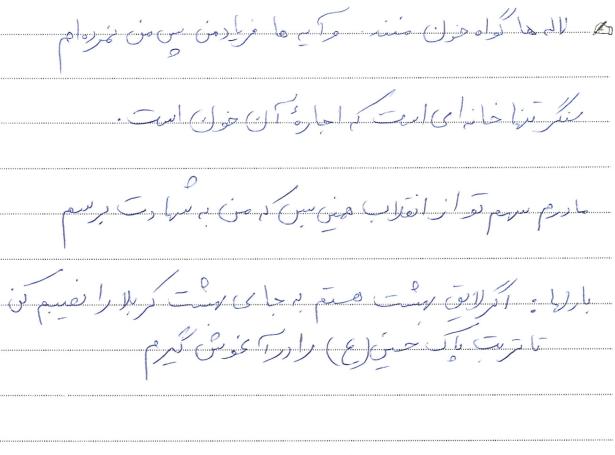 لاله ها گواه خون منند و آیه ها فریاد من پس من نمرده ام
سنگر تنها خانه ای است که اجارهٔ آن خون است.
مادرم سهم تو از انقلاب همین بس که من به شهادت برسم
بارلها: اگر لایق بهشت هستم به جای بهشت کربلا را نصیبم کن
تا تربت پاک حسین (ع) را در آغوش گیرم